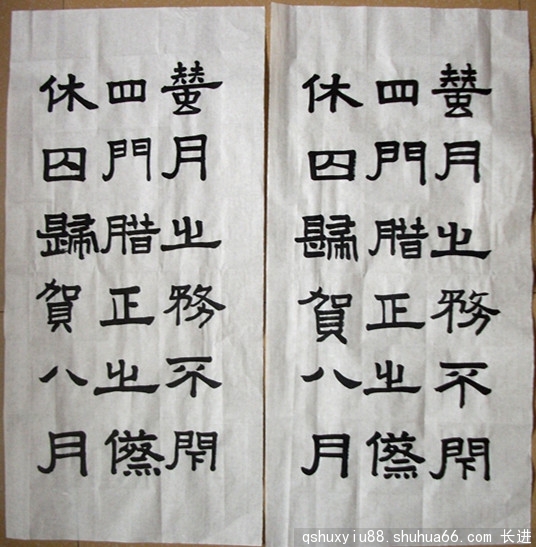 蝅月之務不閇
四門腊正之傺
休囚歸賀八月
蝅月之務不閇
四門腊正之傺
休囚歸賀八月
qshuxyiu88.shuhua66.com 长进